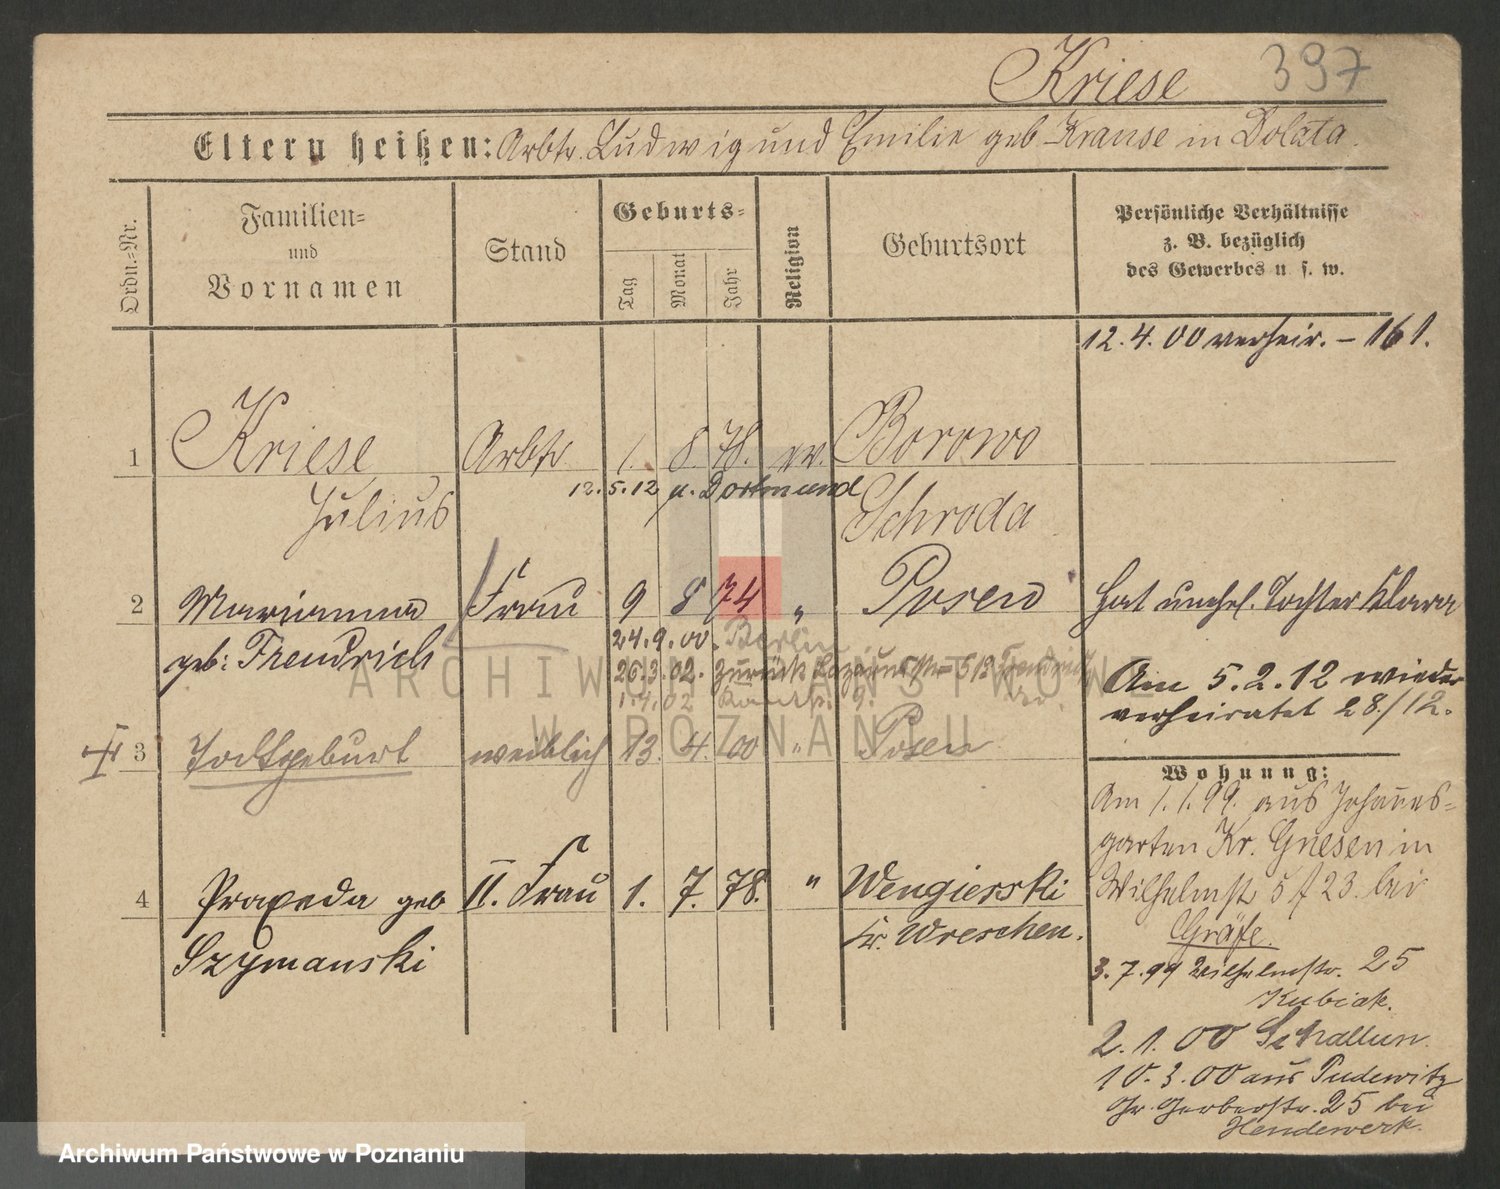 Kriese 397
Eltern heißen: Arbtr. Ludwig und Emilie geb Krause in Dolata.
Ordn.-Nr.
Familien-
und
Vornamen
Stand
Geburts-
Tag
Monat
Jahr
Religion
Geburtsort
Persönliche Verhältnisse
z. B. bezüglich
des Gewerbes u. s. w.
12.4.00 verheir. – 161.
1 Kriese Arbtr. 1. 8. 78. ev. Borowo
Julius 12.5.12 n. Dortmund Schroda
2 Marianna Frau 9 8 74 " Posen Hat unehel. Tochter Klara
geb: Frendrich 24.9.00. Berlin
26.3.02. zurück
1.4.02 9.
Am 5.2.12 wieder
verheiratet 28/12.
3 Todtgeburt weiblich 13. 4. 00 " Posen
Wohnung:
Am 1.1.99. aus Johannes-
garten Kr. Gnesen in
Wilhelmst 23. bei
Gräfe.
4 Praxeda geb II. Frau 1. 7. 78. " Wengierski
Szymanski Kr. Wreschen.
3.7.99 Wilhelmstr. 25
Kubiak.
2.1.00
10.3.00 aus Pudewitz
Gr. Gerberstr. 25 bei
Hendewerk.
ARCHIWUM PAŃSTWOWE
W POZNANIU
Archiwum Państwowe w Poznaniu